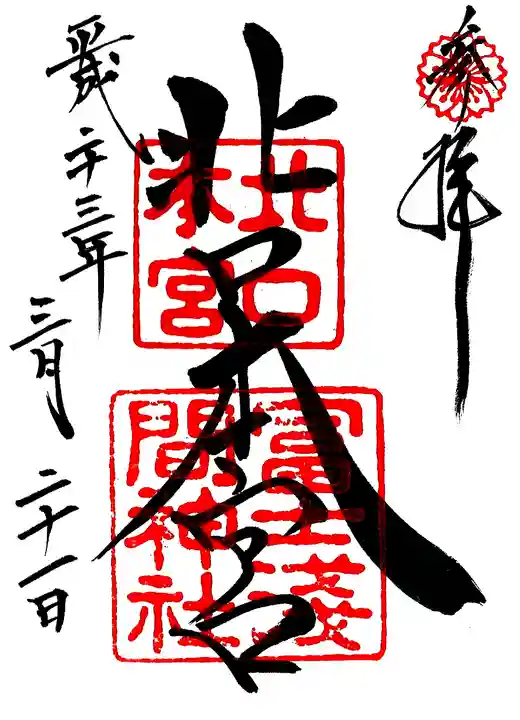 奉拝
北口本宮
北口
本宮
冨士浅
間神社
平成二十三年
三月
二十一日